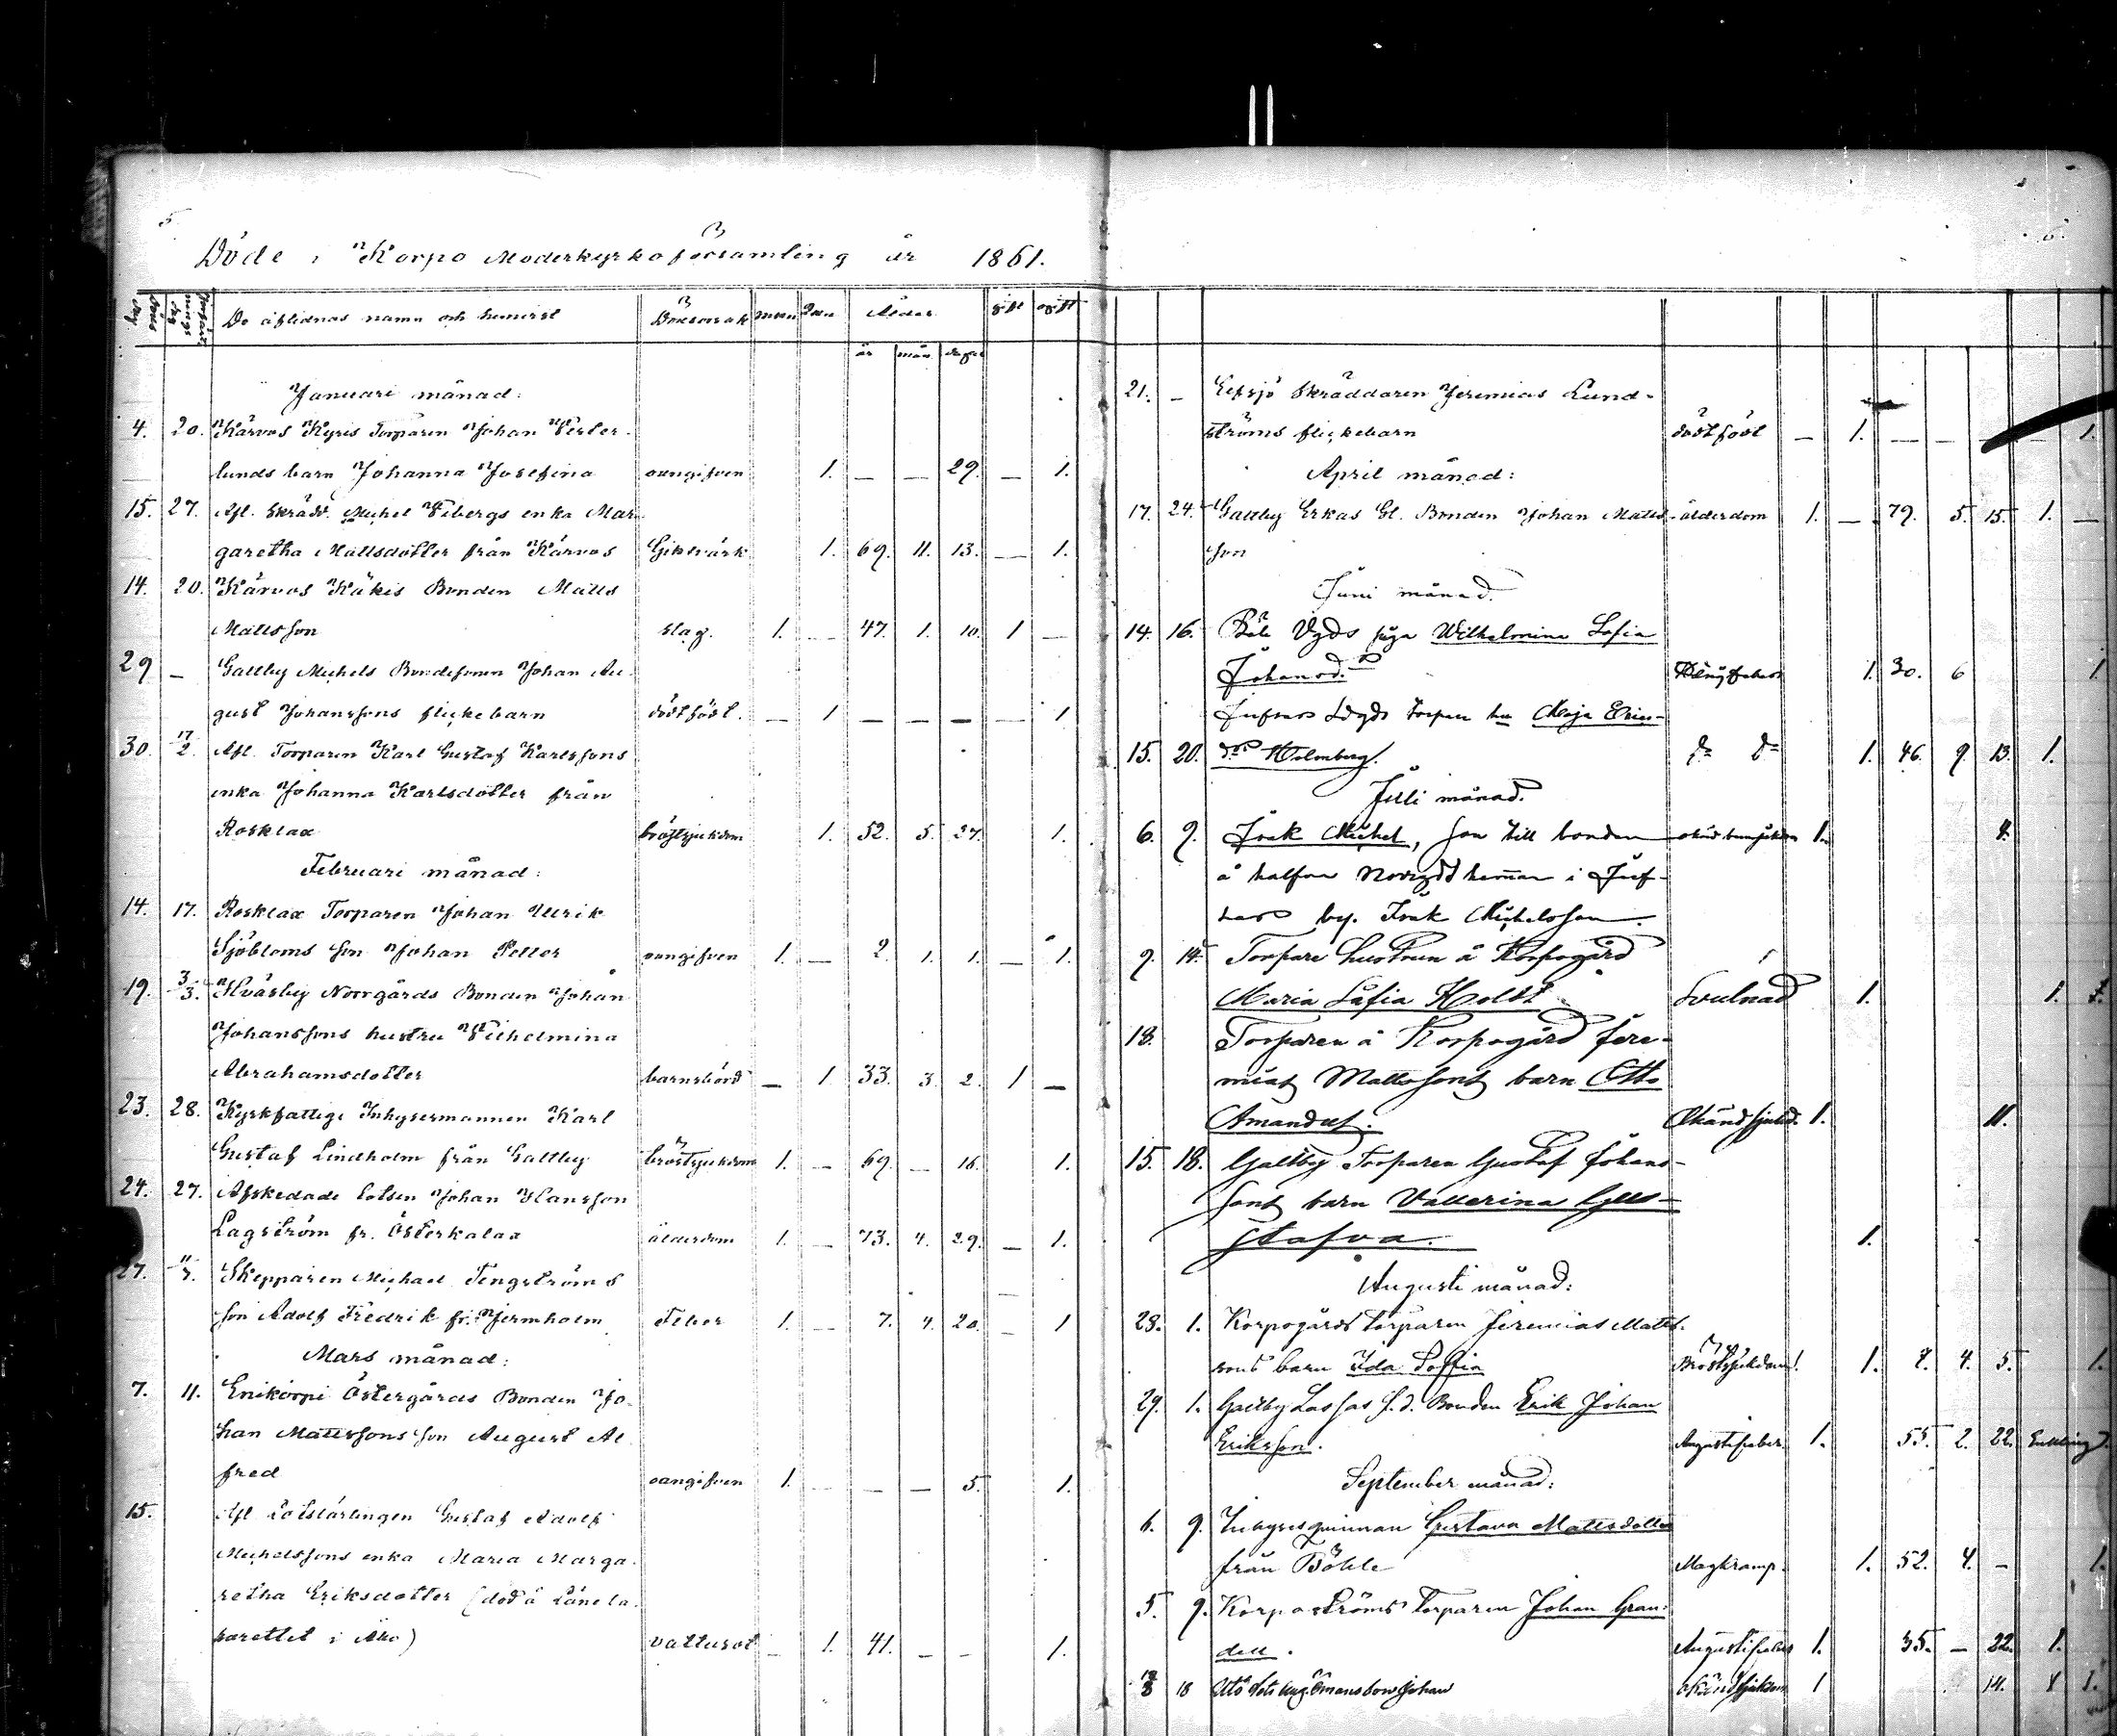 5
Döde i Korpo Moderkyrkoförsamling år 1861.
Döds dag Jordfästnings dag De aflidnas namn och hemvist Dödsorsak man Qvin Ålder gift ogift
år mån. dagar
Januari månad:
4. 20. Kärvas Kyris Torparen Johan Vester-
lunds barn Johanna Josefina oangifven 1. — — 29. — 1.
15. 27. Afl. Skrädd. Michel Vibergs enka Mar-
garetha Mattsdotter från Kärvas Giktvärk 1. 69. 11. 13. — 1.
14. 20. Kärvas Käkis Bonden Matts
Mattsson slag. 1. — 47. 1. 10. 1 —
29 — Galtby Michels Bondesonen Johan Au-
gust Johanssons flickebarn dödfödt. — 1 — — — — 1
30. 17/2. Afl. Torparen Karl Gustaf Karlssons
enka Johanna Karlsdotter från
Rosklax bröstsjukdom 1. 52. 5. 27. 1.
Februari månad:
14. 17. Rosklax Torparen Johan Ulrik
Sjöbloms son Johan Petter oangifven 1. — 2. 1. 1. — 1.
19. 3/3. Hväsby Norrgårds Bonden Johan
Johanssons hustru Vilhelmina
Abrahamsdotter barnsbörd — 1 33. 3. 2. 1 —
23. 28. Kyrkfattige Inhysesmannen Karl
Gustaf Lindholm från Galtby bröstsjukdom 1. — 69. — 16. 1.
24. 27. Afskedade Lotsen Johan Hansson
Lagström fr. Österkalax ålderdom 1. — 73. 4. 29. — 1.
27. 11/3. Skepparen Michael Tengströms
son Adolf Fredrik fr. Jermholm Feber 1. — 7. 4. 20. — 1
Mars månad:
7. 11. Enikorpi Östergårds Bonden Jo-
han Mattssons son August Al-
fred oangifven 1. — — — 5. 1.
15. Afl. Lotslärlingen Gustaf Adolf
Michelssons enka Maria Marga-
retha Eriksdotter (död å Länsla-
sarettet i Åbo) vattusot — 1. 41. — — 1.
21. — Elfsjö Skräddaren Jeremias Lund-
ströms flickebarn dödfödt — 1. — — — 1.
April månad:
17. 24. Galtby Erkas Gl. Bonden Johan Matts- ålderdom 1. — 79. 5. 15. 1. —
son
Juni månad.
14. 16. Wilhelmina Sofia
Johansd. 1. 30. 6 1
Maja Erics-
15. 20. dr Holmberg. do do 1. 46. 9. 13. 1.
Juli månad.
6. 9. Isak Michel, son till bonden 1. 4.
å halfva hemman i
by. Isak Michelsson
9. 14. Torpare hustrun å Korpogård
Maria Sofia Holst Svulnad 1. 1. 1.
18. Torparen å Korpogård Jere-
mias Mattssons barn Otto
Amandus. Okänd sjukd. 1. 11.
15. 18. Galtby Torparen Gustaf Johans-
sons barn Vallerina Gus-
stafva. 1.
Augusti månad:
28. 1. Korpogårds torparen Jeremias Matts-
sons barn Ida Soffia Bröstsjukdom. 1. 4. 5. 1.
29. 1. Galtby Lassas f.d. Bonden Erik Johan
Eriksson. Augustifeber. 1. 55. 2. 22. Enkling
September månad:
6. 9. Inhysesqvinnan Gustava Mattsdotter
från Böhle Magkramp. 1. 52. 4. — 1.
5. 9. Korpoströms Torparen Johan Gran-
dell. Augustifeber 1. 35. — 22. 1.
18 Johan okänd sjukdom 1 14. 1.